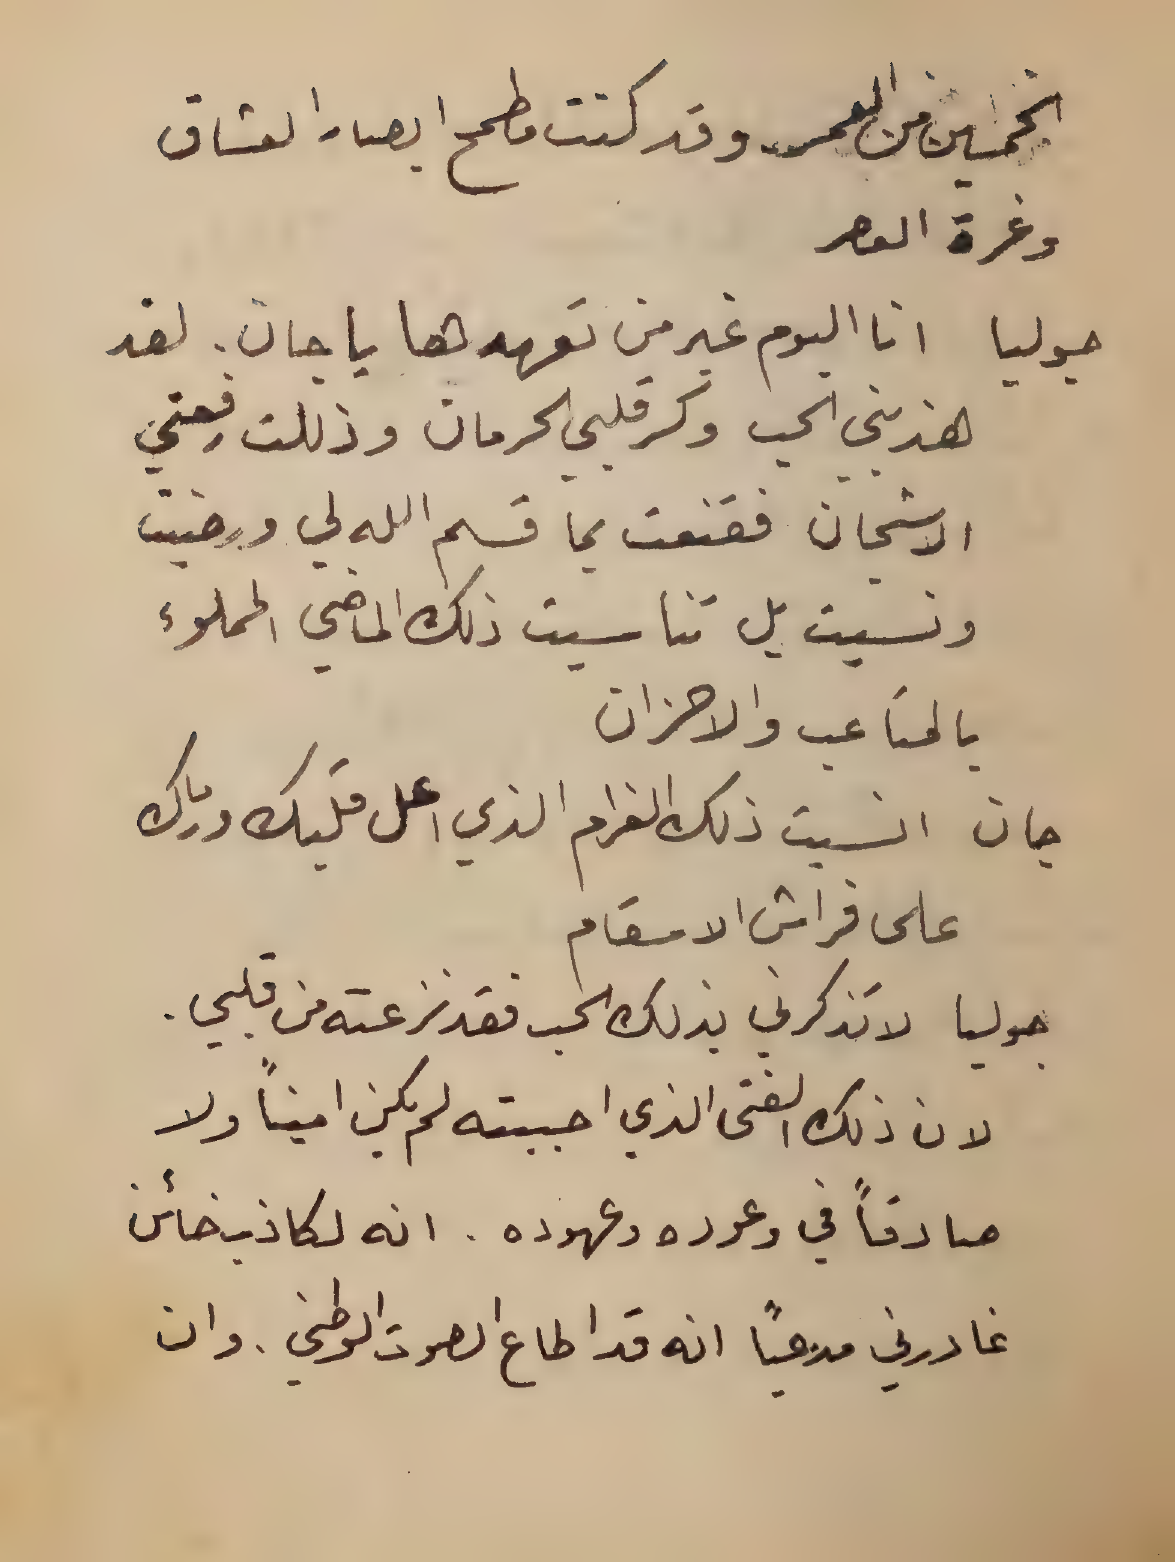 الخمسين من العمر وقد كنت مطمح ابصار العشاق
وغرة العصر
جوليا انا اليوم غير من تعهدها يا جان. لقد
هذبني الحب وكسر قلبي الحرمان وذللت رفعتي
الاشجان فقنعت بما قسم الله لي ورضيت
ونسيت بل تناسيت ذلك الماضي المملوء
بالمتاعب والاحزان
جان انسيت ذلك الغرام الذي اعل قلبك ورماك
على فراش الاسقام
جوليا لا تذكرني بذلك الحب فقد نزعته من قلبي.
لان ذلك الفتى الذي احببته لم يكن اميناً ولا
صادقاً في وعوده وعهوده. انه لكاذب خائن
غادرني مدعياً انه قد اطاع الصوت الوطني. وان